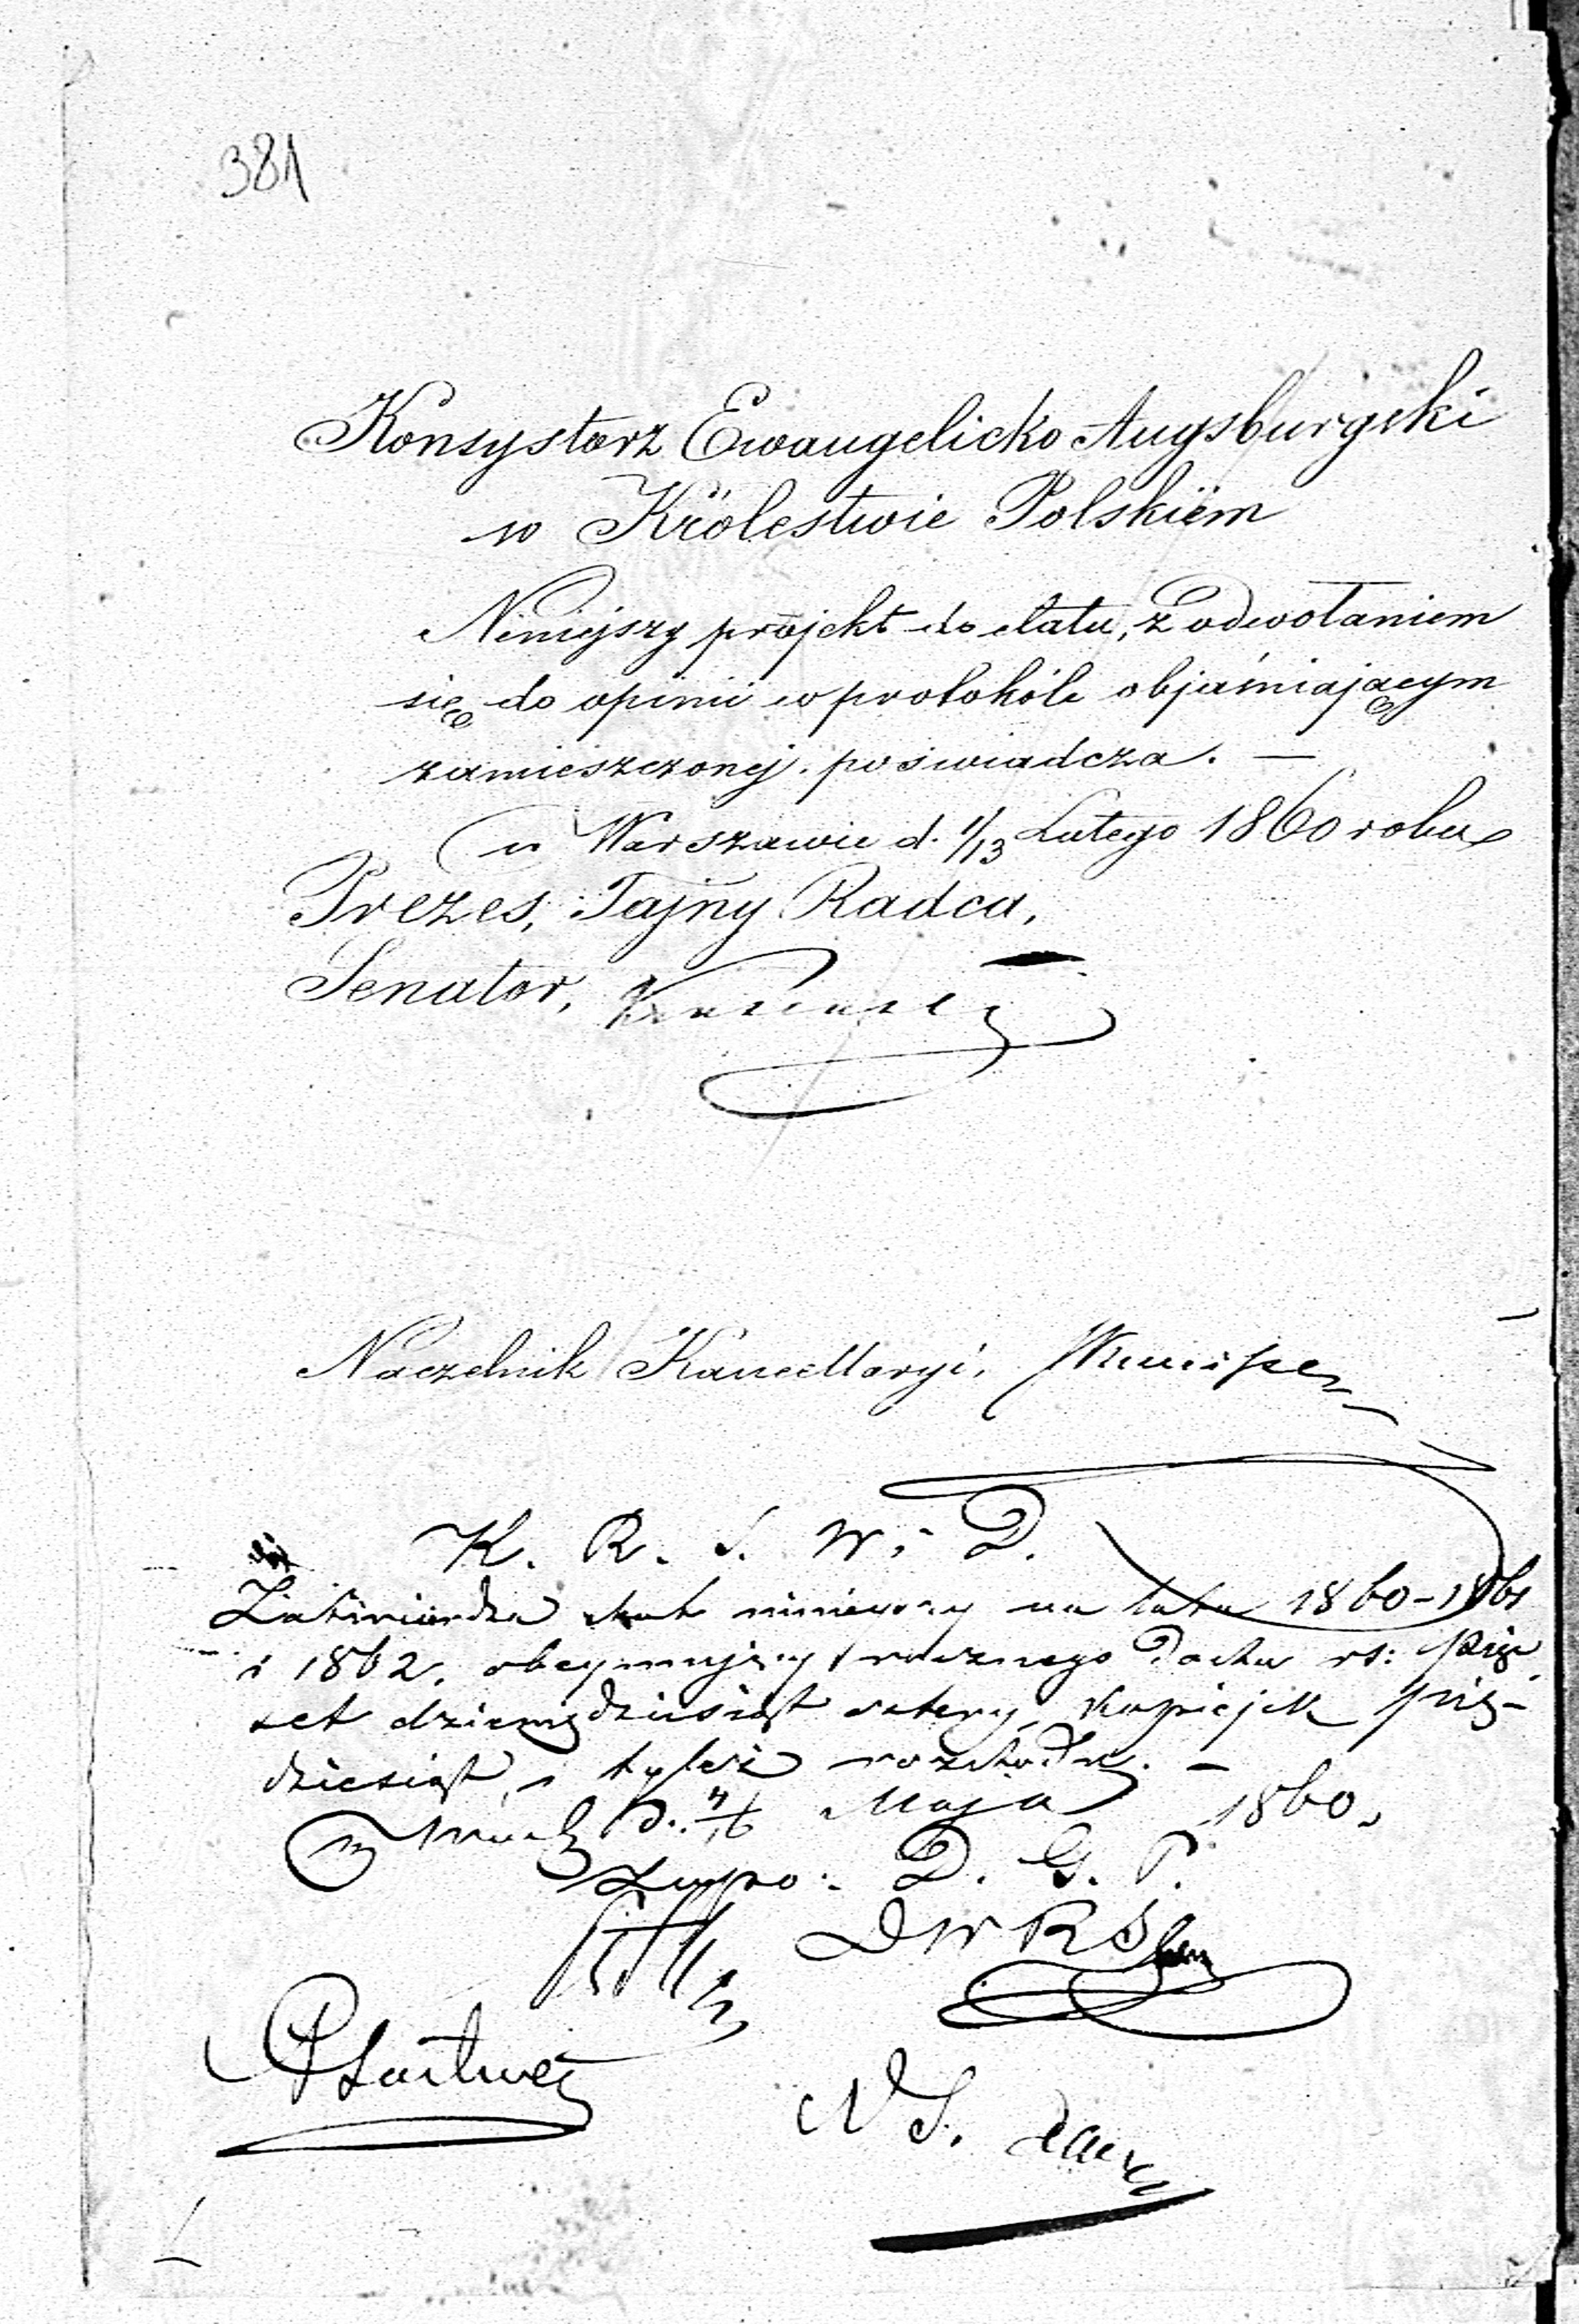 381
Konsystorz Ewangelicko Augsburgski
w Królestwie Polskiém
Niniejszy projekt do etatu, z odwołaniem
się do opinii w protokóle objaśniającym
zamieszczonej. poświadcza. —
w Warszawie d. 1/13 Lutego 1860 roku
Prezes, Tajny Radca,
Senator,
Naczelnik Kancellaryi,
K. R. S. W. i D.
Zatwierdza etat niniejszy na lata 1860-1861
i 1862. obejmujący rocznego Dochodu rs: pięć
set dziewięćdziesiąt cztery, kopiejek pięć-
dziesiąt, i tyleż rozchodu. —
w Warsz D. 4/16 Maja 1860.
Zastępo: D. G. P.
D W R S
N S.